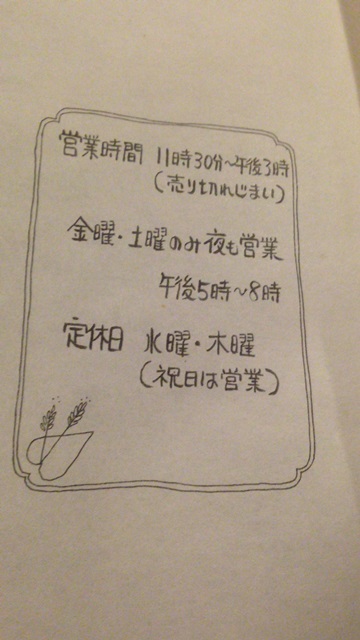 営業時間 11時30分〜午後3時
(売り切れじまい)
金曜・土曜のみ夜も営業
午後5時〜8時
定休日 水曜・木曜
(祝日は営業)